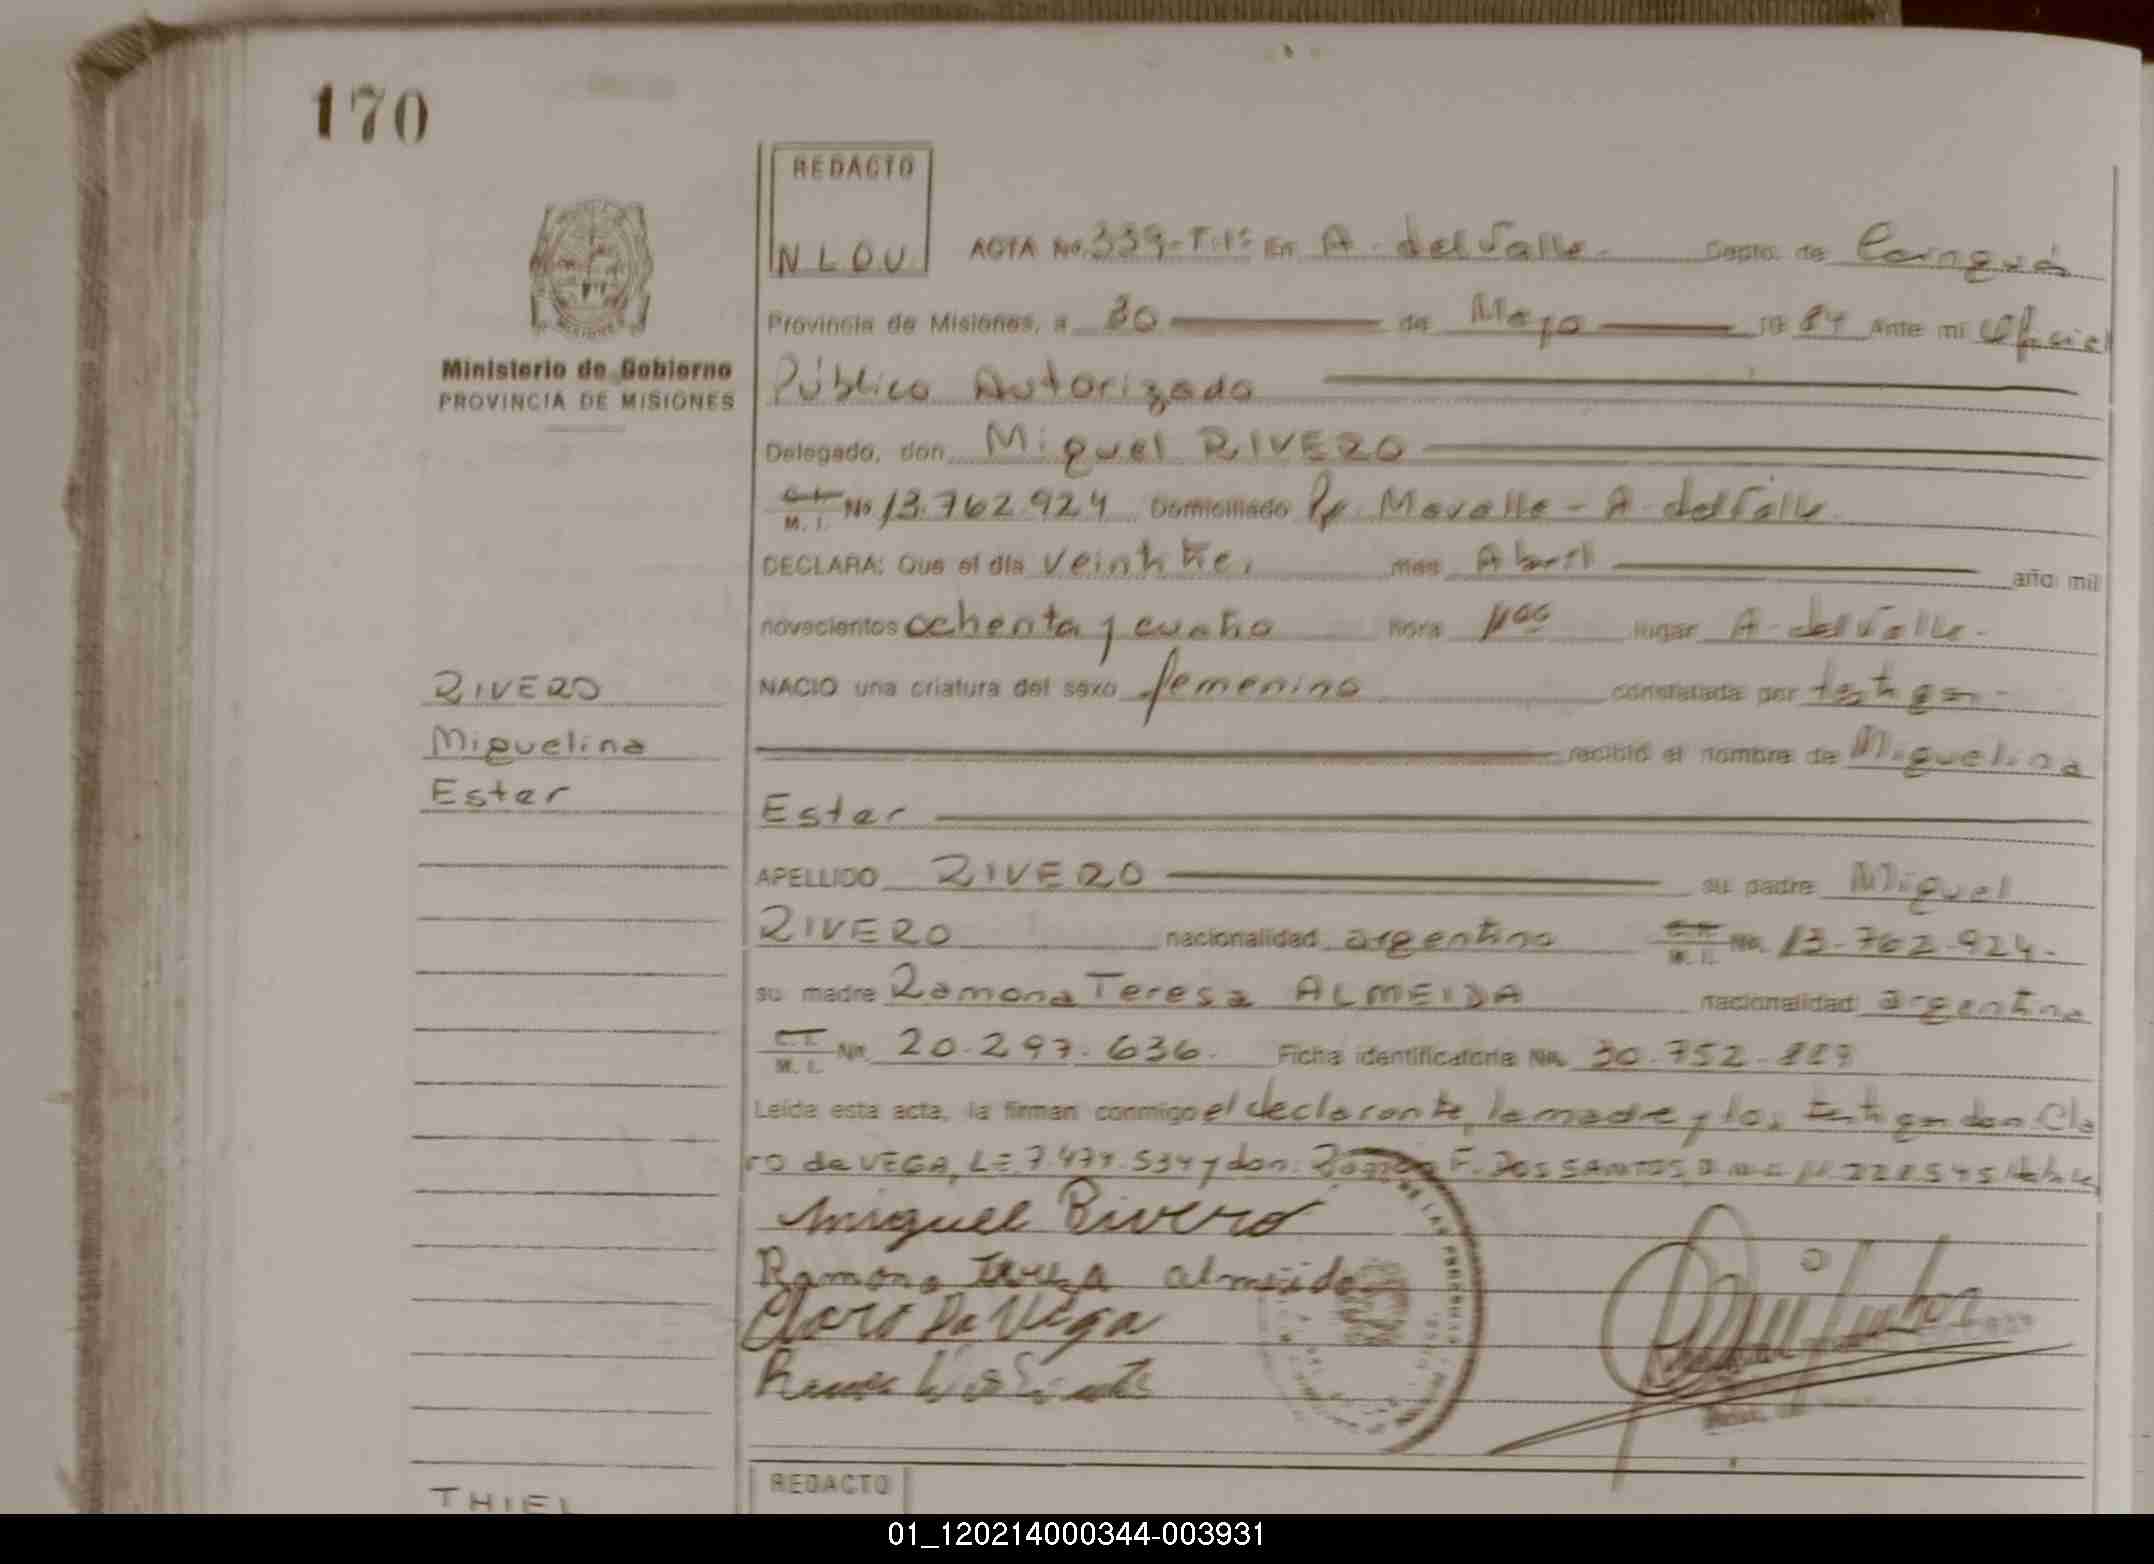 170
REDACTO
N L D U
ACTA No. 339-T.1º En A. del Valle. Depto. de Cainguás
Provincia de Misiones, a 30 de Mayo 19 84 Ante mi Oficial
Público Autorizado
Ministerio de Gobierno
PROVINCIA DE MISIONES
Delegado, don Miguel RIVERO
C. I. M. I. No 13.762.924 Domiciliado Pje. Mavalle - A. del Valle
DECLARA: Que el día veintitres mes Abril año mil
novecientos ochenta y cuatro hora lugar A. del Valle.
NACIO una criatura del sexo femenino constatada por testigos.
recibió el nombre de Miguelina
Ester
RIVERO
Miguelina
Ester
APELLIDO RIVERO su padre Miguel
RIVERO nacionalidad argentino C. I. M. I. No. 13.762.924.
su madre Ramona Teresa ALMEIDA nacionalidad argentina
C. I. M. I. No. 20.297.636. Ficha identificatoria No. 30.752.
Leída esta acta, la firman conmigo el declarante, la madre y los testigos don Cla
ro de VEGA, LE. 7.474.534 y don Ramón F. DOS SANTOS
Miguel Rivero
Ramona Teresa Almeida
Claro Da Vega
REDACTO
THIEL
01_120214000344-003931